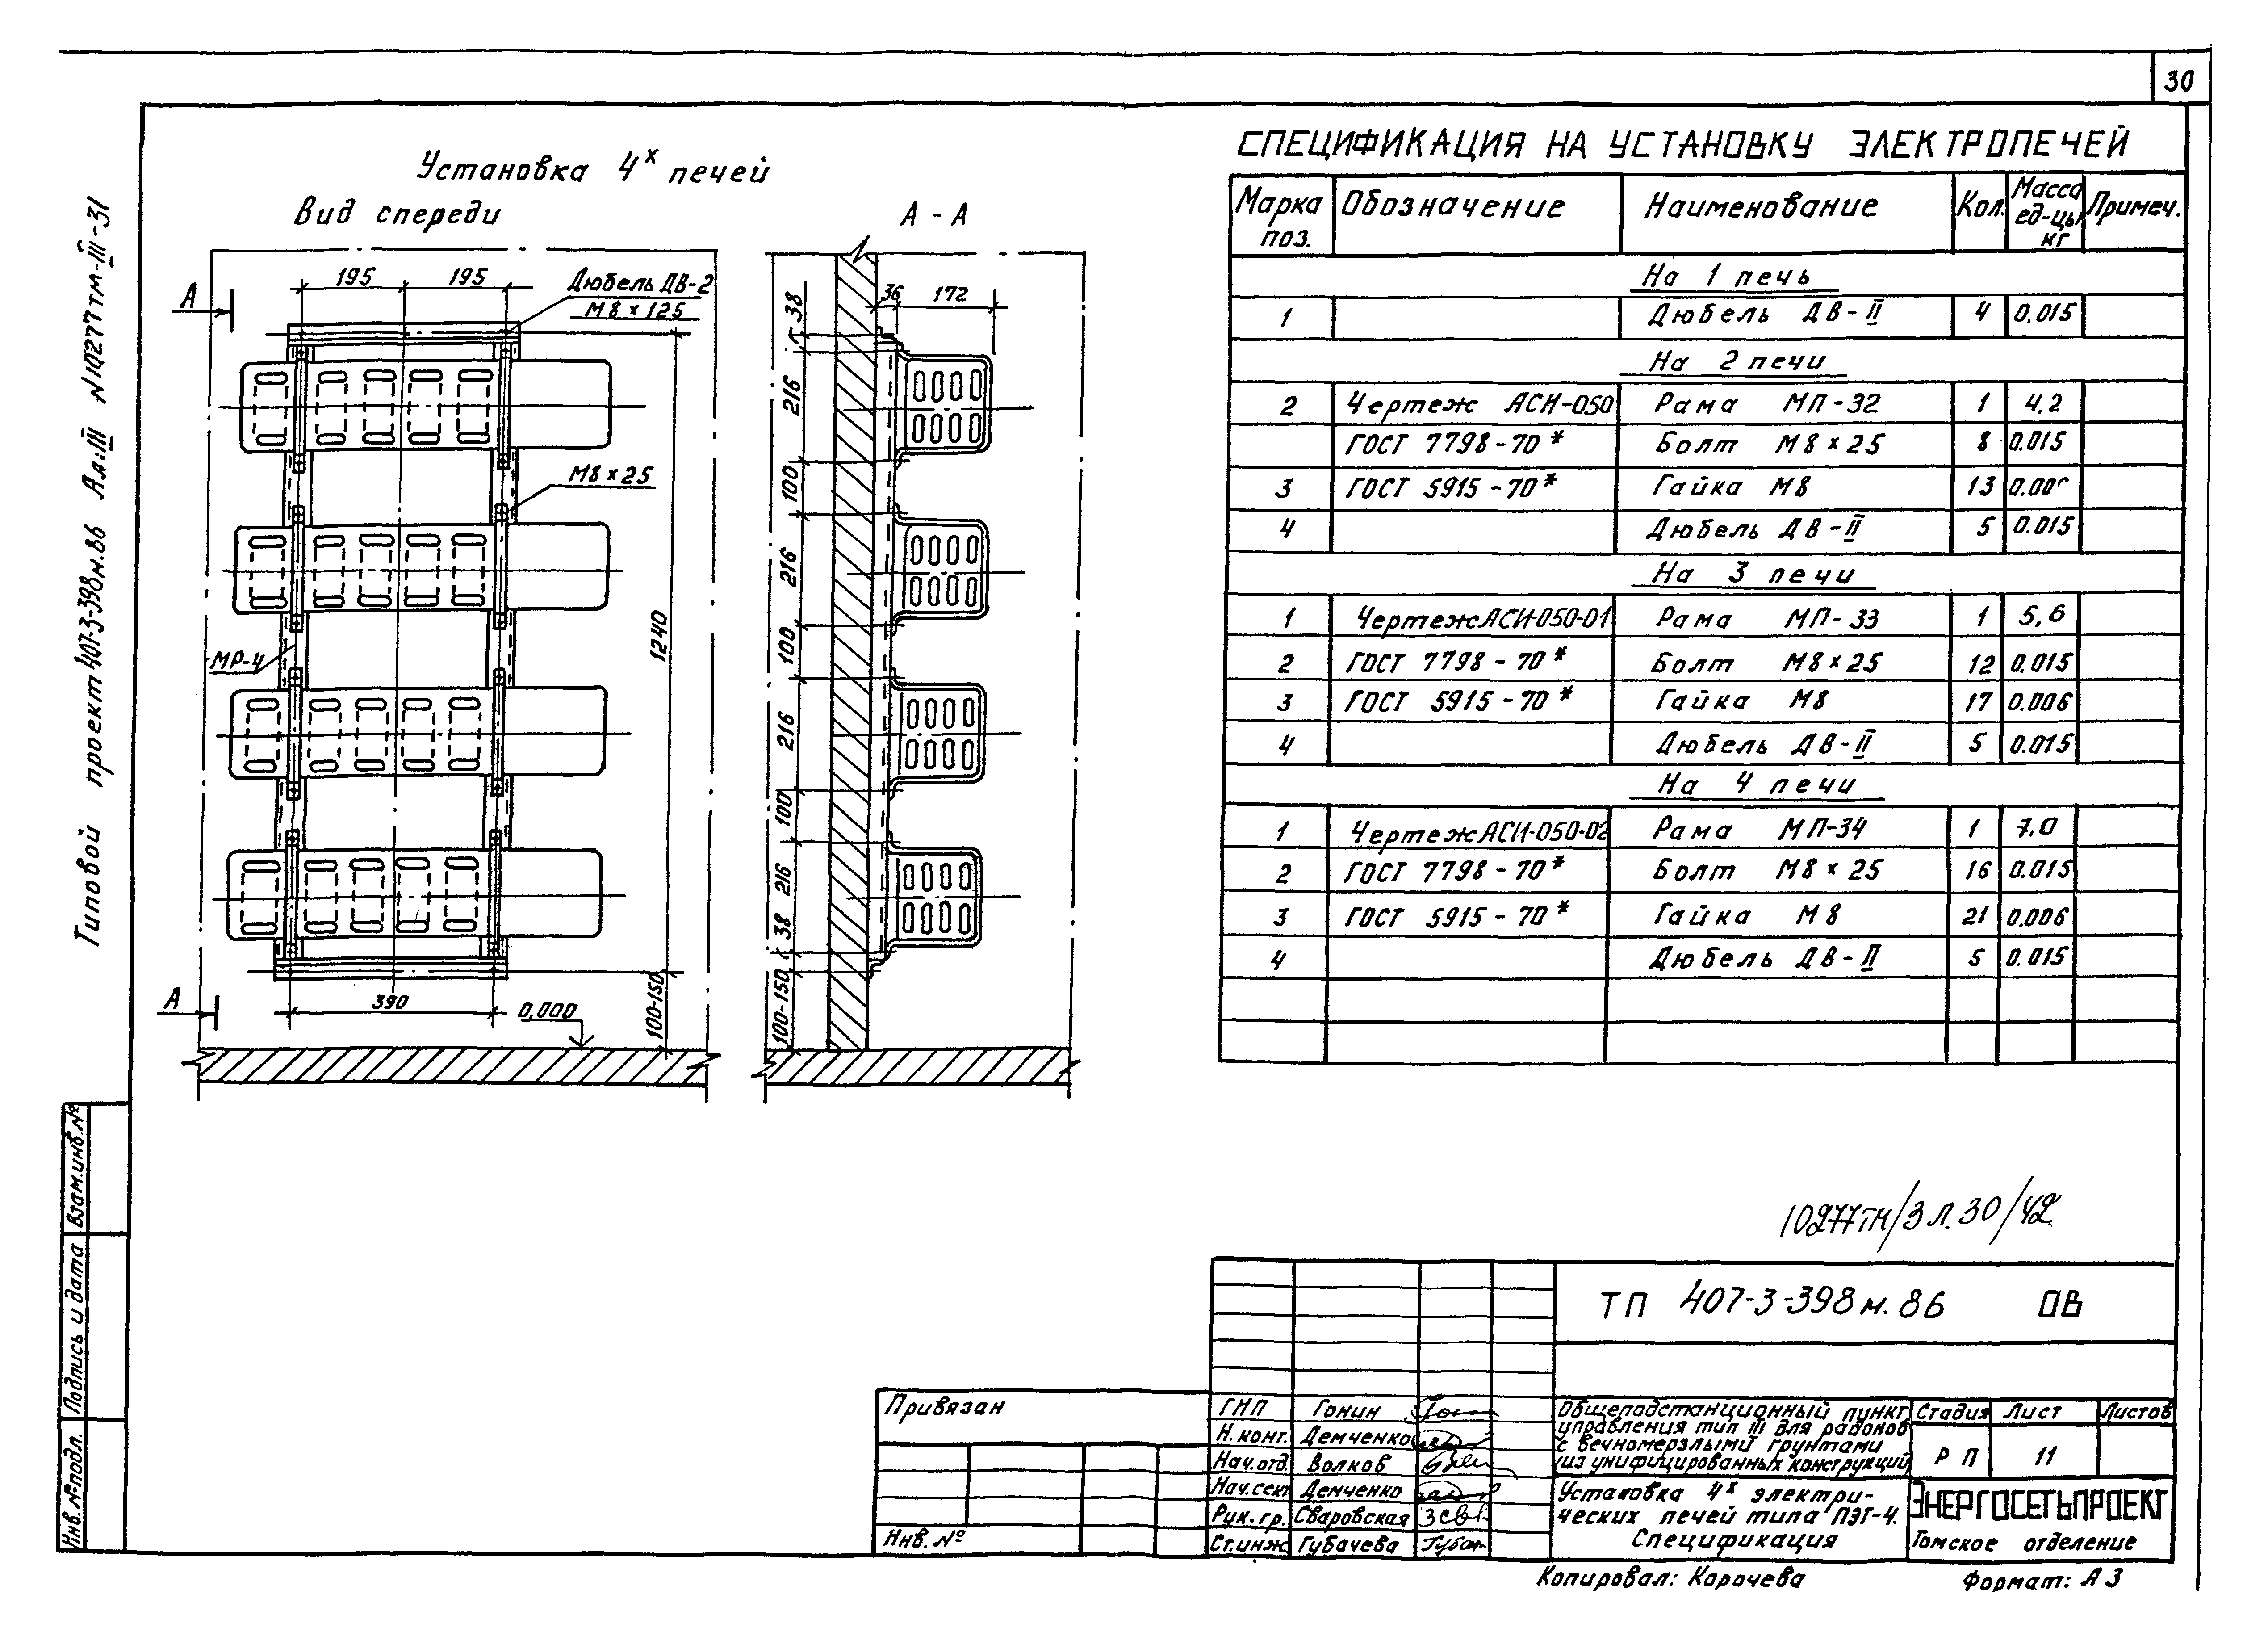 30
Типовой проект 407-3-398м.86 Ал:III №10277тм-III-31
Установка 4х печей
Вид спереди
А - А
А
195 195
Дюбель ДВ-2
М8 х 125
М8 х 25
МР-4
1240
100-150
390
0,000
А
36 172
38
216
100
216
100
216
100
216
38
100-150
СПЕЦИФИКАЦИЯ НА УСТАНОВКУ ЭЛЕКТРОПЕЧЕЙ
Марка поз. Обозначение Наименование Кол. Масса ед-цы кг Примеч.
На 1 печь
1 Дюбель ДВ-II 4 0.015
На 2 печи
2 Чертеж АСИ-050 Рама МП-32 1 4.2
ГОСТ 7798-70* Болт М8 х 25 8 0.015
3 ГОСТ 5915-70* Гайка М8 13
4 Дюбель ДВ-II 5 0.015
На 3 печи
1 Чертеж АСИ-050-01 Рама МП-33 1 5,6
2 ГОСТ 7798-70* Болт М8 х 25 12 0.015
3 ГОСТ 5915-70* Гайка М8 17 0.006
4 Дюбель ДВ-II 5 0.015
На 4 печи
1 Чертеж АСИ-050-02 Рама МП-34 1 7.0
2 ГОСТ 7798-70* Болт М8 х 25 16 0.015
3 ГОСТ 5915-70* Гайка М8 21 0,006
4 Дюбель ДВ-II 5 0.015
10277тм/3 л.30/42
ТП 407-3-398м.86 ОВ
Привязан
Инв. №
ГИП Гонин
Н.конт. Демченко
Нач.отд. Волков
Нач.сект Демченко
Рук.гр. Сваровская
Ст.инж Губачева
Общеподстанционный пункт
управления тип III для районов
с вечномерзлыми грунтами
(из унифицированных конструкций)
Стадия Лист Листов
РП 11
Установка 4х электри-
ческих печей типа ПЭТ-4.
Спецификация
ЭНЕРГОСЕТЬПРОЕКТ
Томское отделение
Копировал: Корочева Формат: А3
Взам.инв.№
Подпись и дата
Инв.№подл.